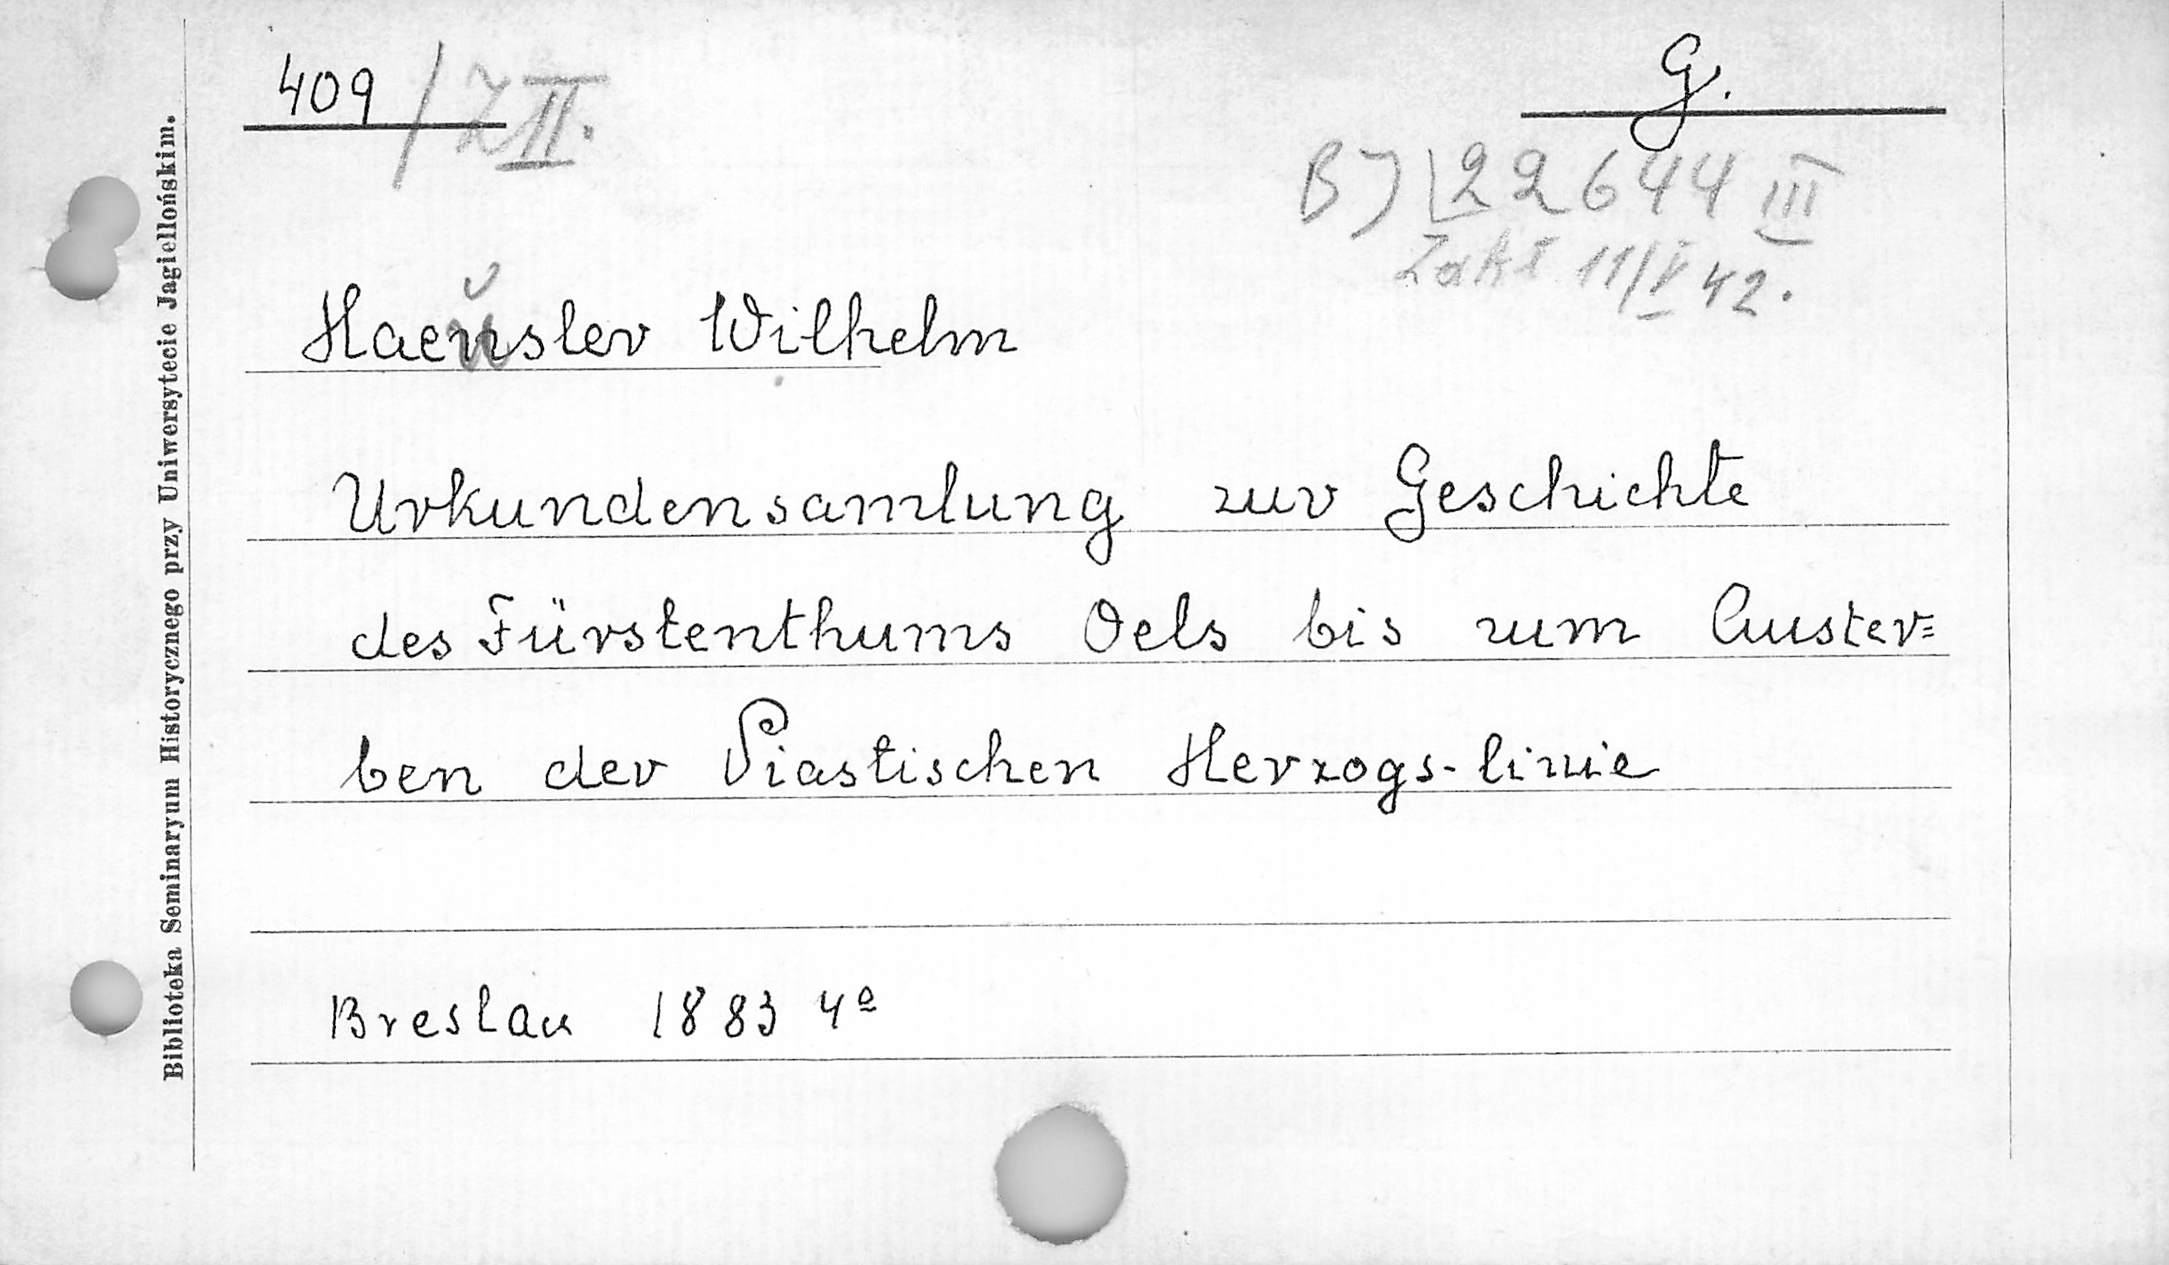 409 / Z II.
G.
B) 22644 III
Zakł 11/V 42.
Haeusler Wilhelm
Urkundensamlung zur Geschichte
des Fürstenthums Oels bis zum Auster=
ben der Piastischen Herzogs-linie
Breslau 1883 4º
Biblioteka Seminaryum Historycznego przy Uniwersytecie Jagiellońskim.